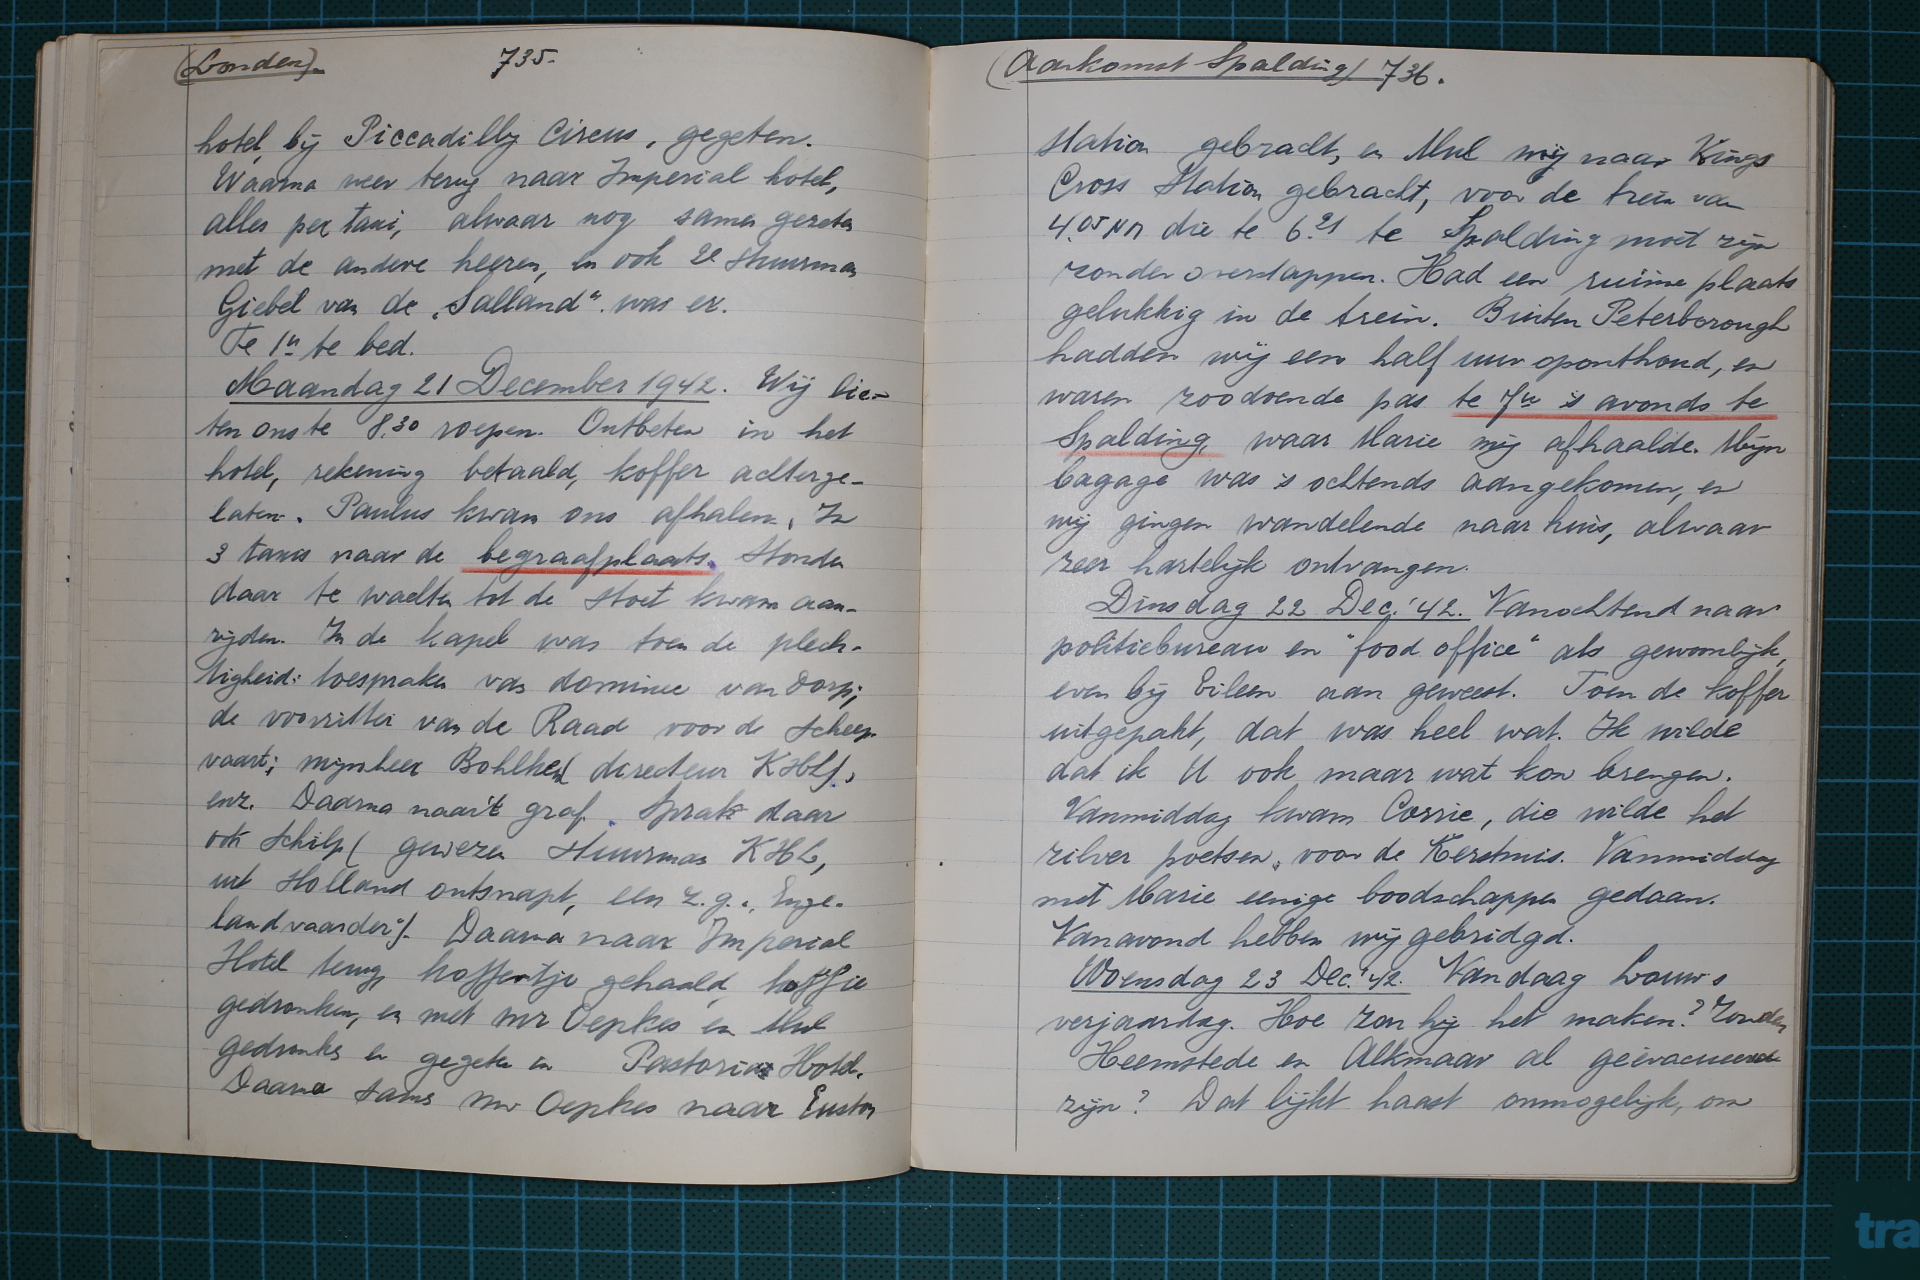 (Londen).
735.
hotel, bij Piccadilly Circus, gegeten.
Waarna weer terug naar Imperial hotel,
alles per taxi, alwaar nog samen gezeten
met de andere heeren, en ook 2e stuurman
Giebel van de „Salland“ was er.
Te 1u te bed.
Maandag 21 December 1942. Wij lie-
ten ons te 8.30 roepen. Ontbeten in het
hotel, rekening betaald, koffer achterge-
laten. Paulus kwam ons afhalen. In
3 taxis naar de begraafplaats. Stonden
daar te wachten tot de stoet kwam aan-
rijden. In de kapel was toen de plech-
tigheid: toespraken van dominee van Dorp;
de voorzitter van de Raad voor de Scheep-
vaart; mijnheer Bohlken (directeur KHL),
enz. Daarna naar 't graf. Sprak daar
ook Schilp (gewezen stuurman KHL,
uit Holland ontsnapt, een z.g. „Enge-
landvaarder“). Daarna naar Imperial
Hotel terug, koffertje gehaald, koffie
gedronken, en met mr Oepkes en Mul
gedronken en gegeten in Pastorias Hotel.
Daarna sams mr Oepkes naar Euston
(Aankomst Spalding) 736.
Station gebracht, en Mul mij naar Kings
Cross Station gebracht, voor de trein van
4.05 NM die te 6.21 te Spalding moet zijn
zonder overstappen. Had een ruime plaats
gelukkig in de trein. Buiten Peterborough
hadden wij een half uur oponthoud, en
waren zoodoende pas te 7u 's avonds te
Spalding, waar Marie mij afhaalde. Mijn
bagage was 's ochtends aangekomen, en
wij gingen wandelende naar huis, alwaar
zeer hartelijk ontvangen.
Dinsdag 22 Dec. '42. Vanochtend naar
politiebureau en "food office" als gewoonlijk,
even bij Eileen aan geweest. Toen de koffer
uitgepakt, dat was heel wat. Ik wilde
dat ik U ook maar wat kon brengen.
Vanmiddag kwam Corrie, die wilde het
zilver poetsen, voor de Kerstmis. Vanmiddag
met Marie eenige boodschappen gedaan.
Vanavond hebben wij gebridgd.
Woensdag 23 Dec. '42. Vandaag Louw's
verjaardag. Hoe zou hij het maken? Zouden
Heemstede en Alkmaar al geëvacueerd
zijn? Dat lijkt haast onmogelijk, om
tra